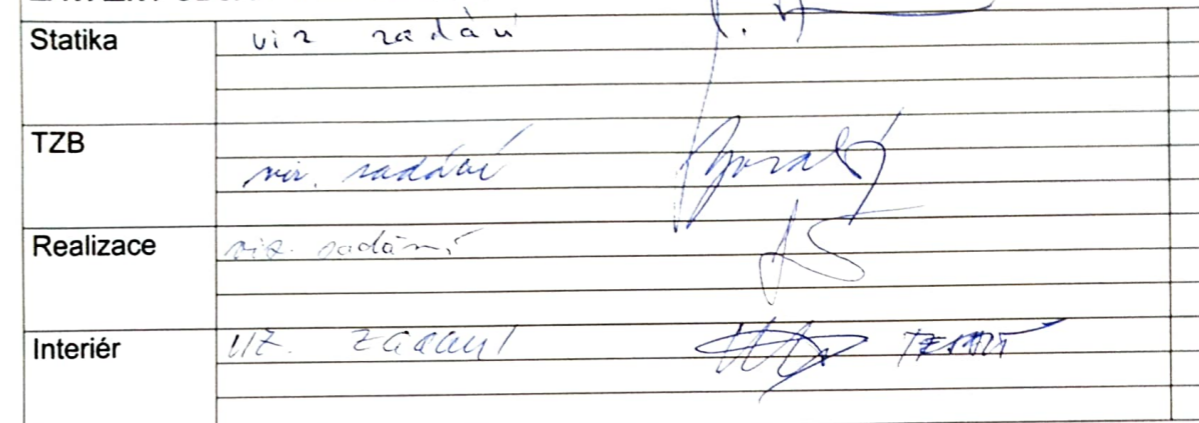 Statika viz zadání
TZB viz. zadání
Realizace viz. zadání
Interiér viz. zadání